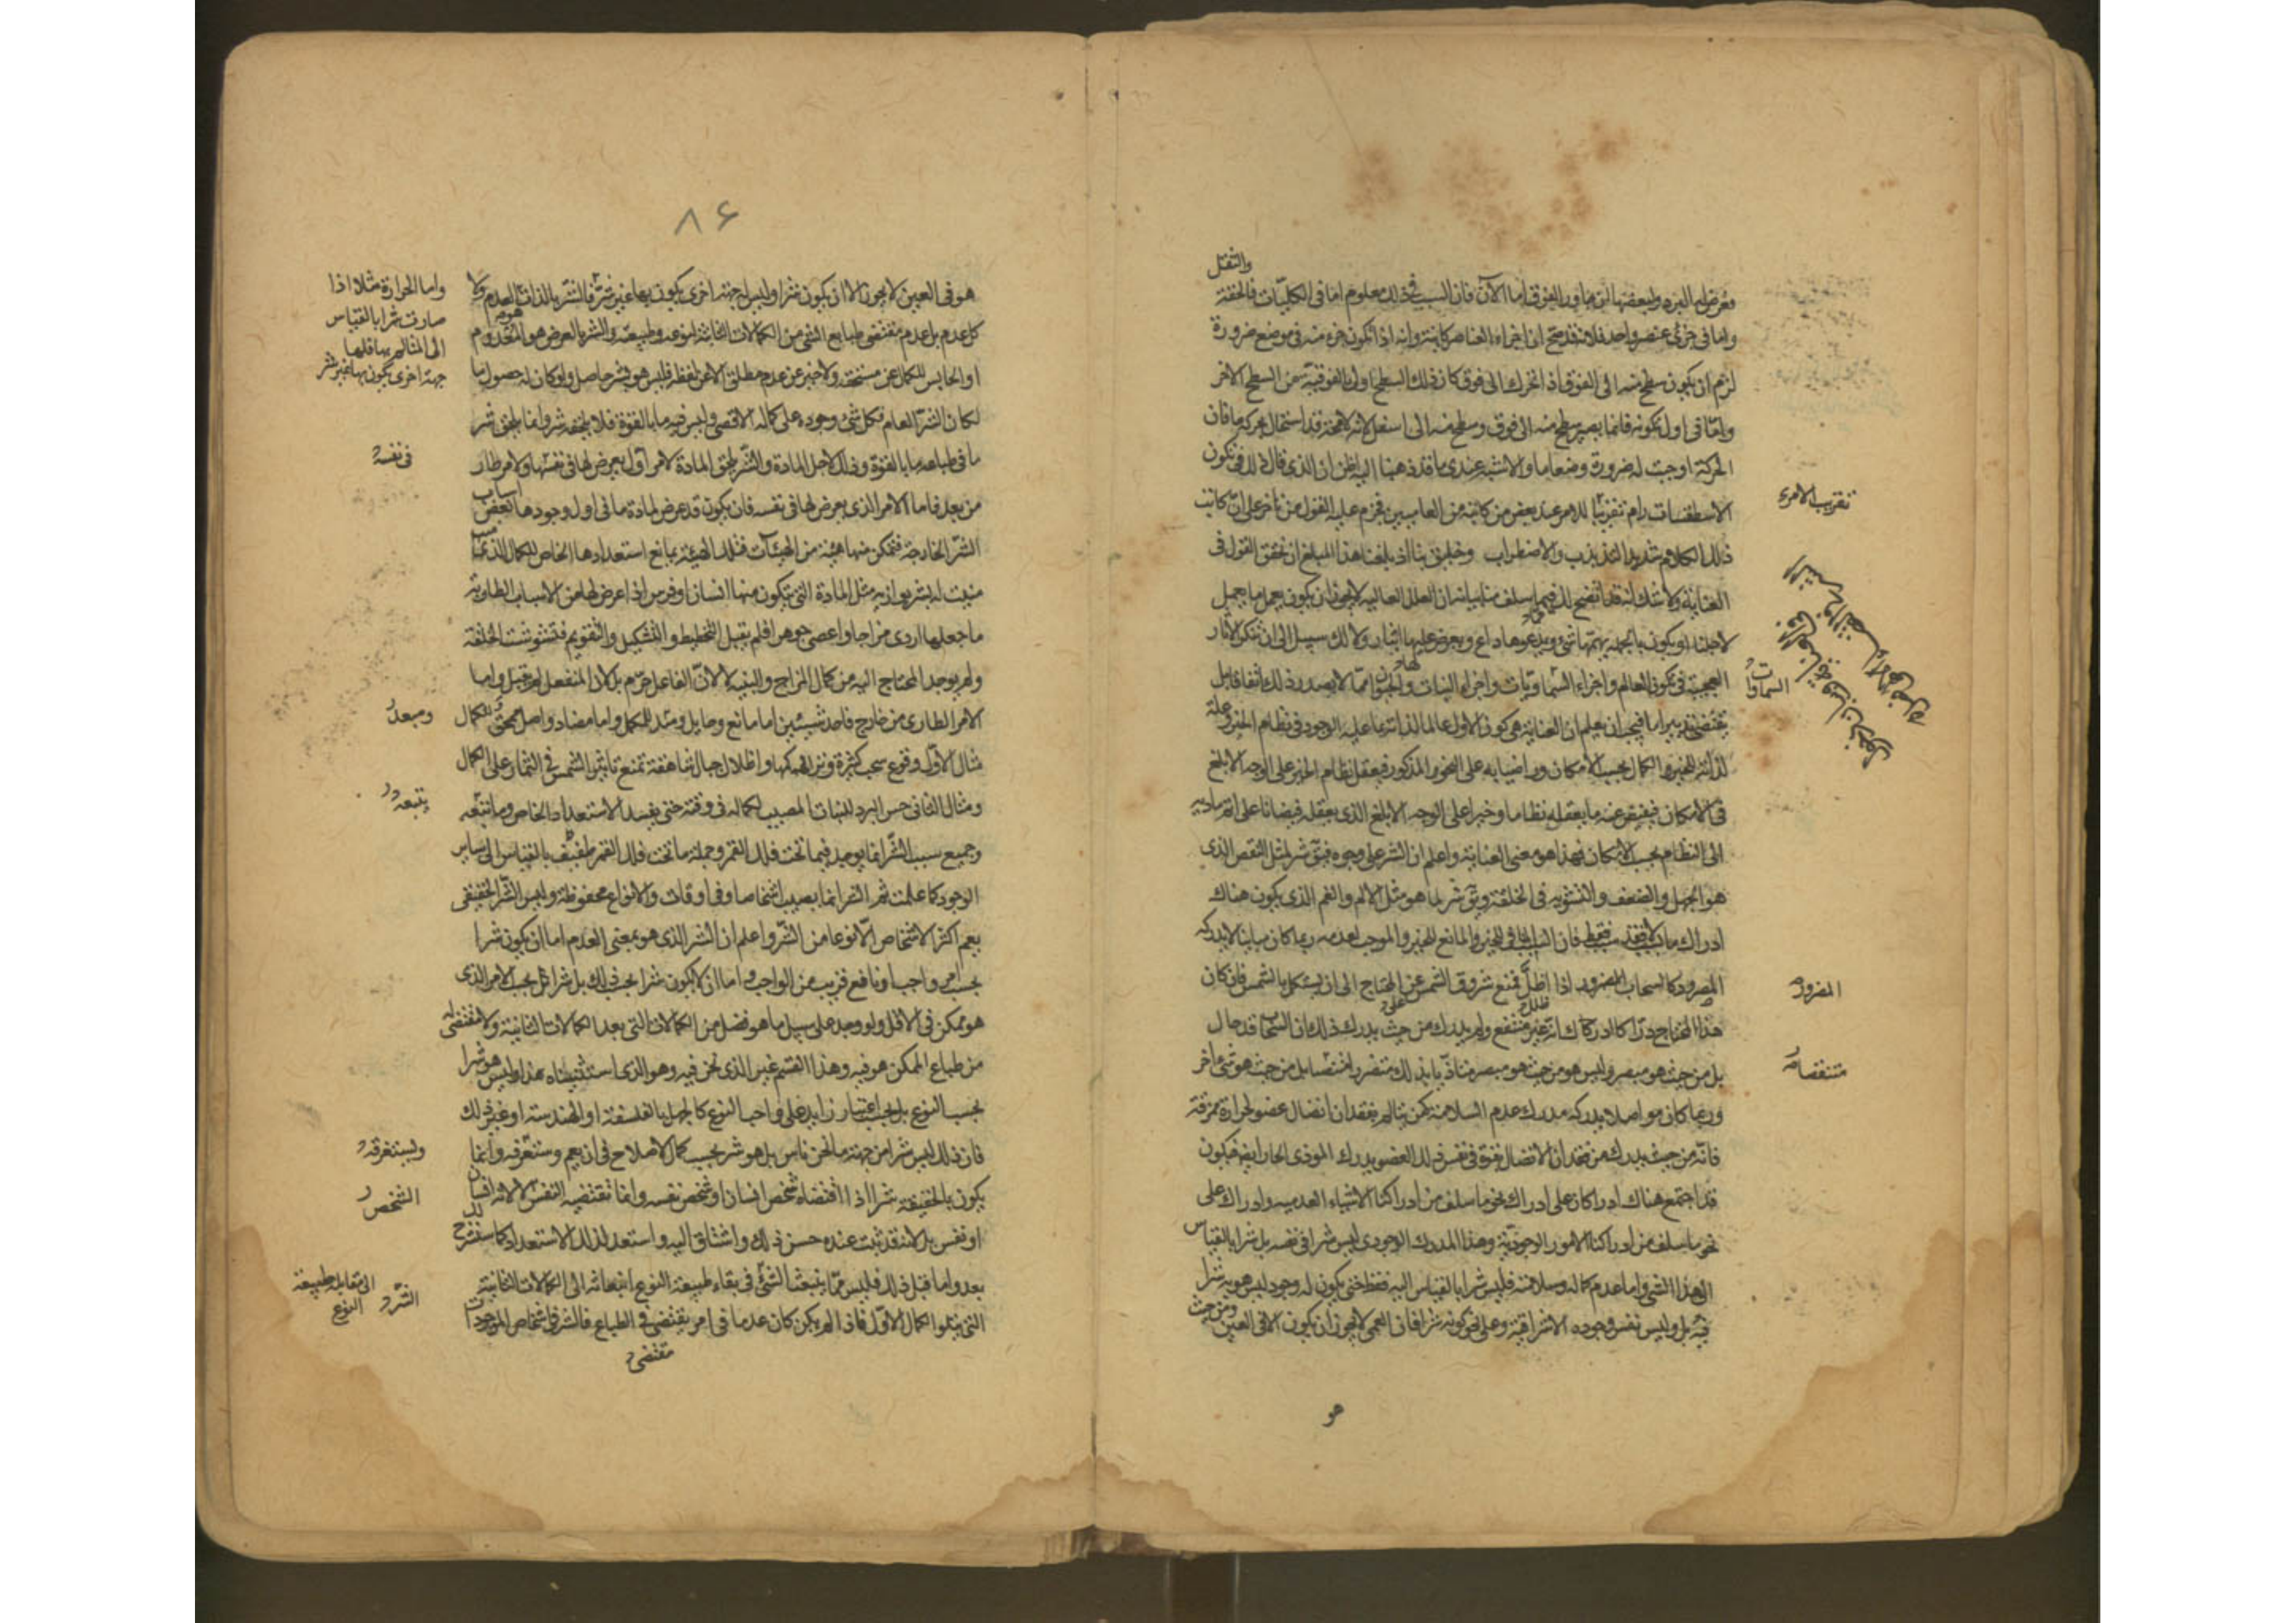 والثقل
وعرض له البرد ولبعضها ان جاور الفوق اما الآن فان السبب في ذلك معلوم اما في الكليات فالخفة
واما في جزئ عنصر واحد فلانه قد صح ان اجزاء العناصر كاينة وانه اذا تكون جزء منه في موضع ضرورة
لزم ان يكون سطح منه الى الفوق اذ اتحرك الى فوق كان ذلك السطح اولى بالفوقية من السطح الاخر
واما في اول تكونه فانما يصير سطح منه الى فوق وسطح منه الى اسفل لانه لا محة قد استحال بحركة ما فان
الحركة اوجبت له ضرورة وضعا ما والاشبه عندى ما قد ذهبنا اليه اظن ان الذى قال ذلك في تكون
الاسطقسات رام تقريبا للامر عند بعض من كاتبه من العاميين فجزم عليه القول من تاخر على ان كاتب
ذلك الكلام شديد التذبذب والاضطراب وخليق بنا اذ بلغنا هذا المبلغ ان نحقق القول في
العناية ولا شك انه قد اتضح لك فيما سلف منا بيانه ان العلل العالية لا يجوز ان يكون يعمل ما يعمل
لاجلنا او يكون بالجملة يهمها شئ ويدعوها داع ويعرض عليها ايثار ولا لك سبيل الى ان تنكر الآثار
العجيبة في تكون العالم واجزاء السماويات واجزاء النبات والحيوان مما لا يصدر ذلك اتفاقا بل
يقتضى تدبيرا ما فيجب ان يعلم ان العناية هي كون الاول عالما لذاته بما عليه الوجود في نظام الخير وعلة
لذاته للخير والكمال بحسب الامكان وراضيا به على النحو المذكور فيعقل نظام الخير على الوجه الابلغ
في الامكان فيفيض عنه ما يعقله نظاما وخيرا على الوجه الابلغ الذى يعقله فيضانا على اتم تادية
الى النظام بحسب الامكان فهذا هو معنى العناية واعلم ان الشر على وجوه فيق شر لمثل النقص الذى
هو الجهل والضعف والتشويه في الخلقة ويق شر لما هو مثل الالم والغم الذى يكون هناك
ادراك ما بسبب لا فقد سبب فقط فان السبب المنافي للخير والمانع للخير والموجب لعدمه ربما كان مباينا لا يدركه
المضرور كالسحاب اذا اظل فمنع شروق الشمس عن المحتاج الى ان يستكمل بالشمس فان كان
هذا المحتاج دراكا ادرك انه غير منتفع ولم يدرك من حيث يدرك ذلك ان السحاب قد حال
بل من حيث هو مبصر وليس هو من حيث هو مبصر متاذيا بذلك متضررا منتقصا بل من حيث هو شئ آخر
وربما كان مواصلا يدركه مدرك عدم السلامة كمن يتالم بفقدان اتصال عضو لحرارة ممزقة
فانه من حيث يدرك من فقدان الاتصال بقوة في نفس ذلك العضو يدرك الموذى الحار ايضا فيكون
قد اجتمع هناك ادراكان على ادراك نحو ما سلف من ادراكنا الاشياء العدمية وادراك على
نحو ما سلف من ادراكنا الامور الوجودية وهذا المدرك الوجودى ليس شرا في نفسه بل شرا بالقياس
الى هذا الشئ واما عدم كماله وسلامته فليس شرا بالقياس اليه فقط حتى يكون له وجود ليس هو به شرا
فيه بل وليس نفس وجوده الا شرا فيه وعلى نحو كونه شرا فان العمى لا يجوز ان يكون الا في العين ومن حيث
هو
تقريب الامر
السماوات
المضرور
منتقصا
٨۶
هو في العين لا يجوز الا ان يكون شرا وليس له جهة اخرى يكون بها غير شر فالشر بالذات هو العدم ولا
كل عدم بل عدم مقتضى طباع الشئ من الكمالات الثابتة لنوعه وطبيعته والشر بالعرض هو المعدوم
او الحابس للكمال عن مستحقه ولا خبر عن عدم مطلق الا عن لفظه فليس هو بشر حاصل ولو كان له حصول ما
لكان الشر العام فكل شئ وجوده على كماله الاقصى وليس فيه ما بالقوة فلا يلحقه شر وانما يلحق شر
ما في طباعه ما بالقوة وذلك لاجل المادة والشر يلحق المادة لامر اول يعرض لها في نفسها ولامر طار
من بعد فاما الامر الذى يعرض لها في نفسه فان يكون قد عرض لمادة ما في اول وجودها بعض اسباب
الشر الخارجة فتمكن منها هيئة من الهيئات فتلك الهيئة يمانع استعدادها الخاص للكمال الذى
منيت له بشر يوازيه مثل المادة التى يتكون منها انسان او فرس اذا عرض لها من الاسباب الطارية
ما جعلها اردى مزاجا واعصى جوهرا فلم يقبل التخطيط والتشكيل والتقويم فتشوشت الخلقة
ولم يوجد المحتاج اليه من كمال المزاج والبنية لا لان الفاعل حرم بل لان المنفعل لم يقبل واما
الامر الطارى من خارج فاحد شيئين اما مانع وحايل ومبعد للكمل واما مضاد واصل ممحق للكمال
مثال الاول وقوع سحب كثيرة وتراكمها واظلال جبال شاهقة تمنع تاثير الشمس في الثمار على الكمال
ومثال الثانى حس البرد للنبات المصيب لكماله في وقته حتى يفسد الاستعداد الخاص وما يتبعه
وجميع سبب الشر انما يوجد فيما تحت فلك القمر وجملة ما تحت فلك القمر طفيف بالقياس الى ساير
الوجود كما علمت ثم الشر انما يصيب اشخاصا وفي اوقات والانواع محفوظة وليس الشر الحقيقى
يعم اكثر الاشخاص الا نوعا من الشر واعلم ان الشر الذى هو بمعنى العدم اما ان يكون شرا
بحسب امر واجب او نافع قريب من الواجب واما ان لا يكون شرا بحسب ذلك بل شرا بحسب الامر الذى
هو ممكن في الاقل ولو وجد على سبيل ما هو فضل من الكمالات التى بعد الكمالات الثانية ولا مقتضى له
من طباع الممكن هو فيه وهذا القسم غير الذى نحن فيه وهو الذى استثنيناه هذا وليس هو شرا
بحسب النوع بل بحسب اعتبار زايد على واجب النوع كالجهل بالفلسفة او الهندسة او غير ذلك
فان ذلك ليس شرا من جهة ما نحن ناس بل هو شر بحسب كمال الاصلاح في ان يعم وستعرفه وانما
يكون بالحقيقة شرا اذا اقتضاه شخص انسان او شخص نفسه وانما تقتضيه النفس لا لانه انسان
او نفس بل لانه قد ثبت عنده حسن ذلك واشتاق اليه واستعد لذلك الاستعداد كما سنشرح
بعد واما قبل ذلك فليس مما ينبعث الشئ في بقاء طبيعة النوع انبعاثه الى الكمالات الثانية
التى يتلوا الكمال الاول فاذا لم يكن كان عدما في امر يقتضى في الطباع فالشر في اشخاص الموجودات
مقتضى
واما الحرارة مثلا اذا
صارت شرا بالقياس
الى المتالم بها فلها
جهة اخرى يكون بها غير شر
في نفسه
ومبعد
يتبعه
وليستغرقه
الشخص
الشر
الى مقابله طبيعة
النوع